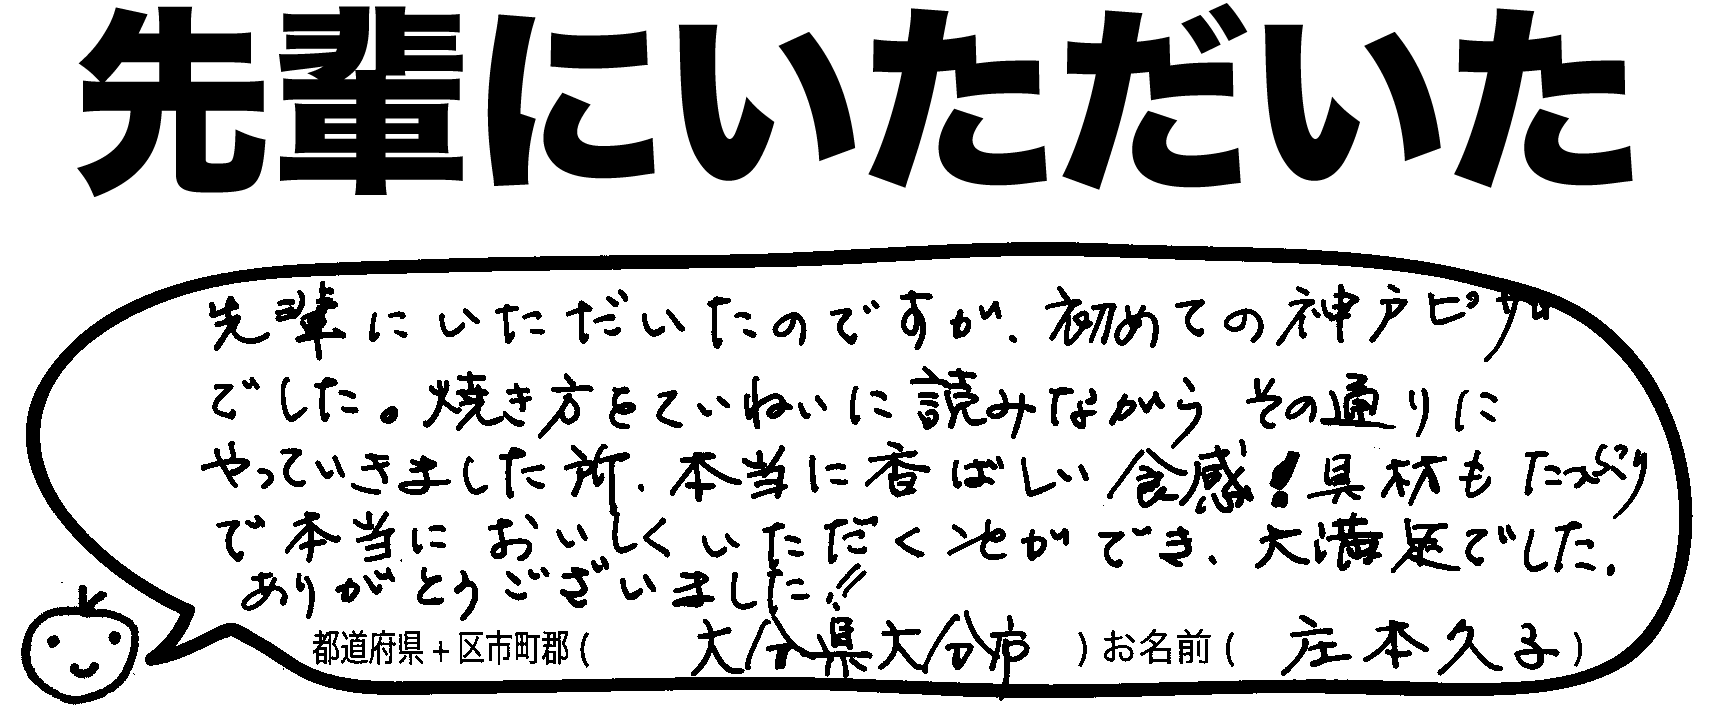 先輩にいただいた
先輩にいただいたのですが、初めての神戸ピザ
でした。焼き方をていねいに読みながらその通りに
やっていきました所、本当に香ばしい食感!具材もたっぷり
で本当においしくいただくことができ、大満足でした。
ありがとうございました!!
都道府県+区市町郡( 大分県大分市 )お名前( 庄本久子 )